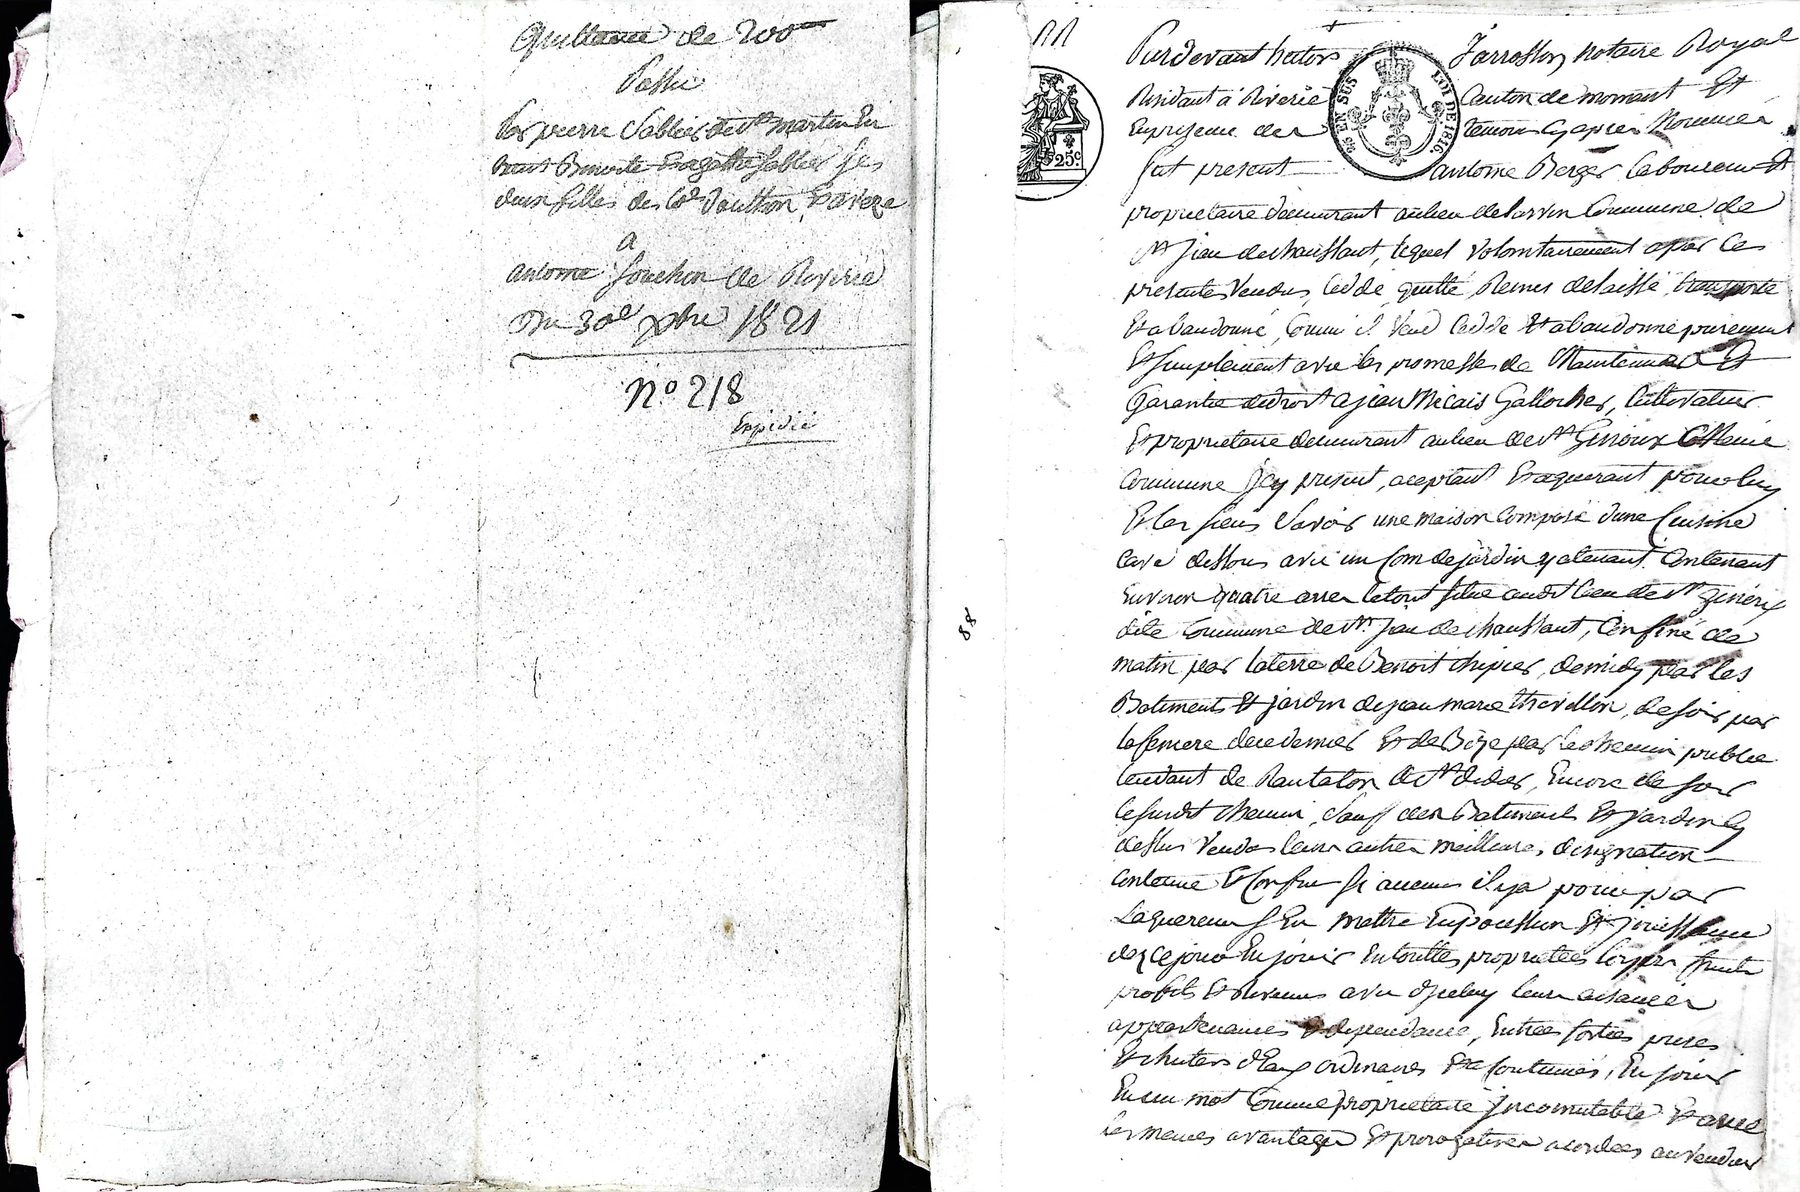 Quittance de 200
Passée
Par pierre Vallier de St martin En
haut Benoite Et agathe Vallier ses
deux filles de Souchon Et aveze
a
antoine Souchon de Riverie
Du 30e xbre 1821
N° 218
Expidié
88
Pardevant hector Jarrosson notaire Royal
Residant a Riverie Canton de mornant Et
En presence des temoins cy apres Nommés
fut present antoine Berger laboureur Et
proprietaire demeurant au lieu de Commune de
St Jean de chaussant, lequel volontairement a par Ces
presentes Vendu, Cedé, quitté, Remis delaissé, transporté
Et abandonné, Comme il Vend Cedde Et abandonne purement
Et simplement avec les promesses de Maintenue Et
Garantie de droit a jean Micais Cultivateur
Et proprietaire demeurant au lieu de St Genoux Meme
Commune Jcy present, aceptant Et aquerant pour luy
Et les siens Savoir une maison Composé d'une Cuisine
Cave dessous avec un Coin de jardin y atenant Contenant
Environ quatre ares le tout situé audit lieu de St
dite Commune de St. Jean de chaussant, Confiné de
matin par la terre de Benoit chipier, de midy par les
Batiments Et jardin de jean marie thevillon, de soir par
de ce dernier Et de Bize par le chemin publie
tendant de a St didier, Encore de soir
le susdit chemin, Sauf des Batiments Et jardin Cy
dessus Vendus leurs autres meilleures, designation
Contenue Et Confins si aucuns il y a pour par
L'aquereur S'En mettre En possession Et jouissance
des ce jour En jouir En touttes proprietées loyers fruits
profits Et Revenus avec d'Jceluy leurs aisances
appartenances Et dependance, Entrées sorties prises
Et chutes d'Eaux ordinaires Et Coutumés, En jouir
En un mot Comme proprietaire Jncomutable Et avec
les memes avantages Et prerogatives acordées au Vendeur
25 EN SUS
LOI DE 1816
25c